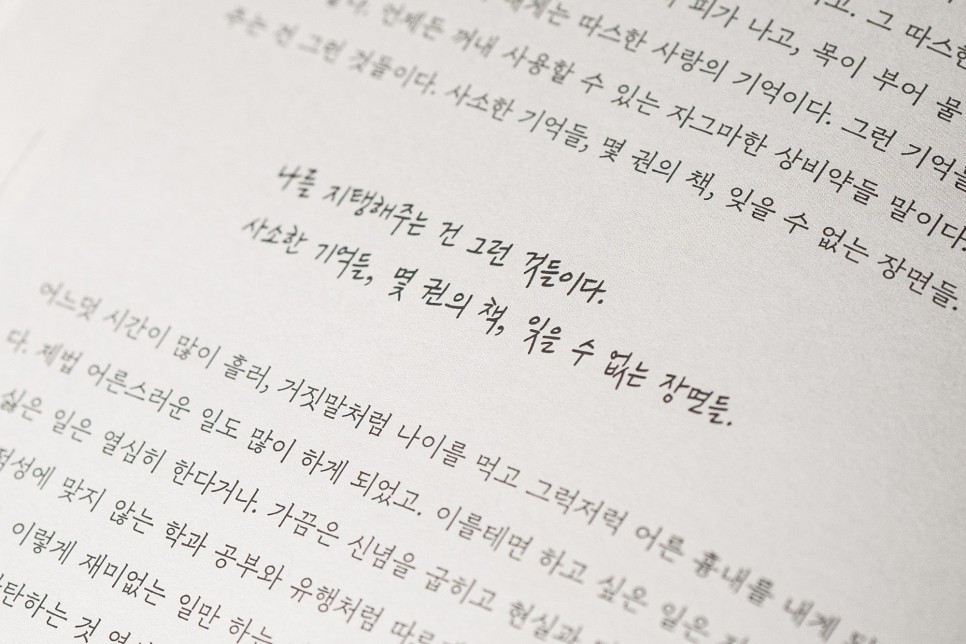 피가 나고, 목이 부어 물
따스한 사랑의 기억이다. 그런 기억들
언제든 꺼내 사용할 수 있는 자그마한 상비약들 말이다.
주는 건 그런 것들이다. 사소한 기억들, 몇 권의 책, 잊을 수 없는 장면들.
나를 지탱해주는 건 그런 것들이다.
사소한 기억들, 몇 권의 책, 잊을 수 없는 장면들.
어느덧 시간이 많이 흘러, 거짓말처럼 나이를 먹고 그럭저럭 어른 흉내를 내게 되
다. 제법 어른스러운 일도 많이 하게 되었고. 이를테면 하고 싶은 일은
싫은 일은 열심히 한다거나. 가끔은 신념을 굽히고 현실과
적성에 맞지 않는 학과 공부와 유행처럼
이렇게 재미없는 일만 하는